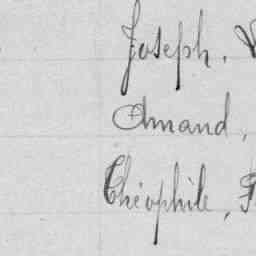 Joseph,
Amand,
Théophile,